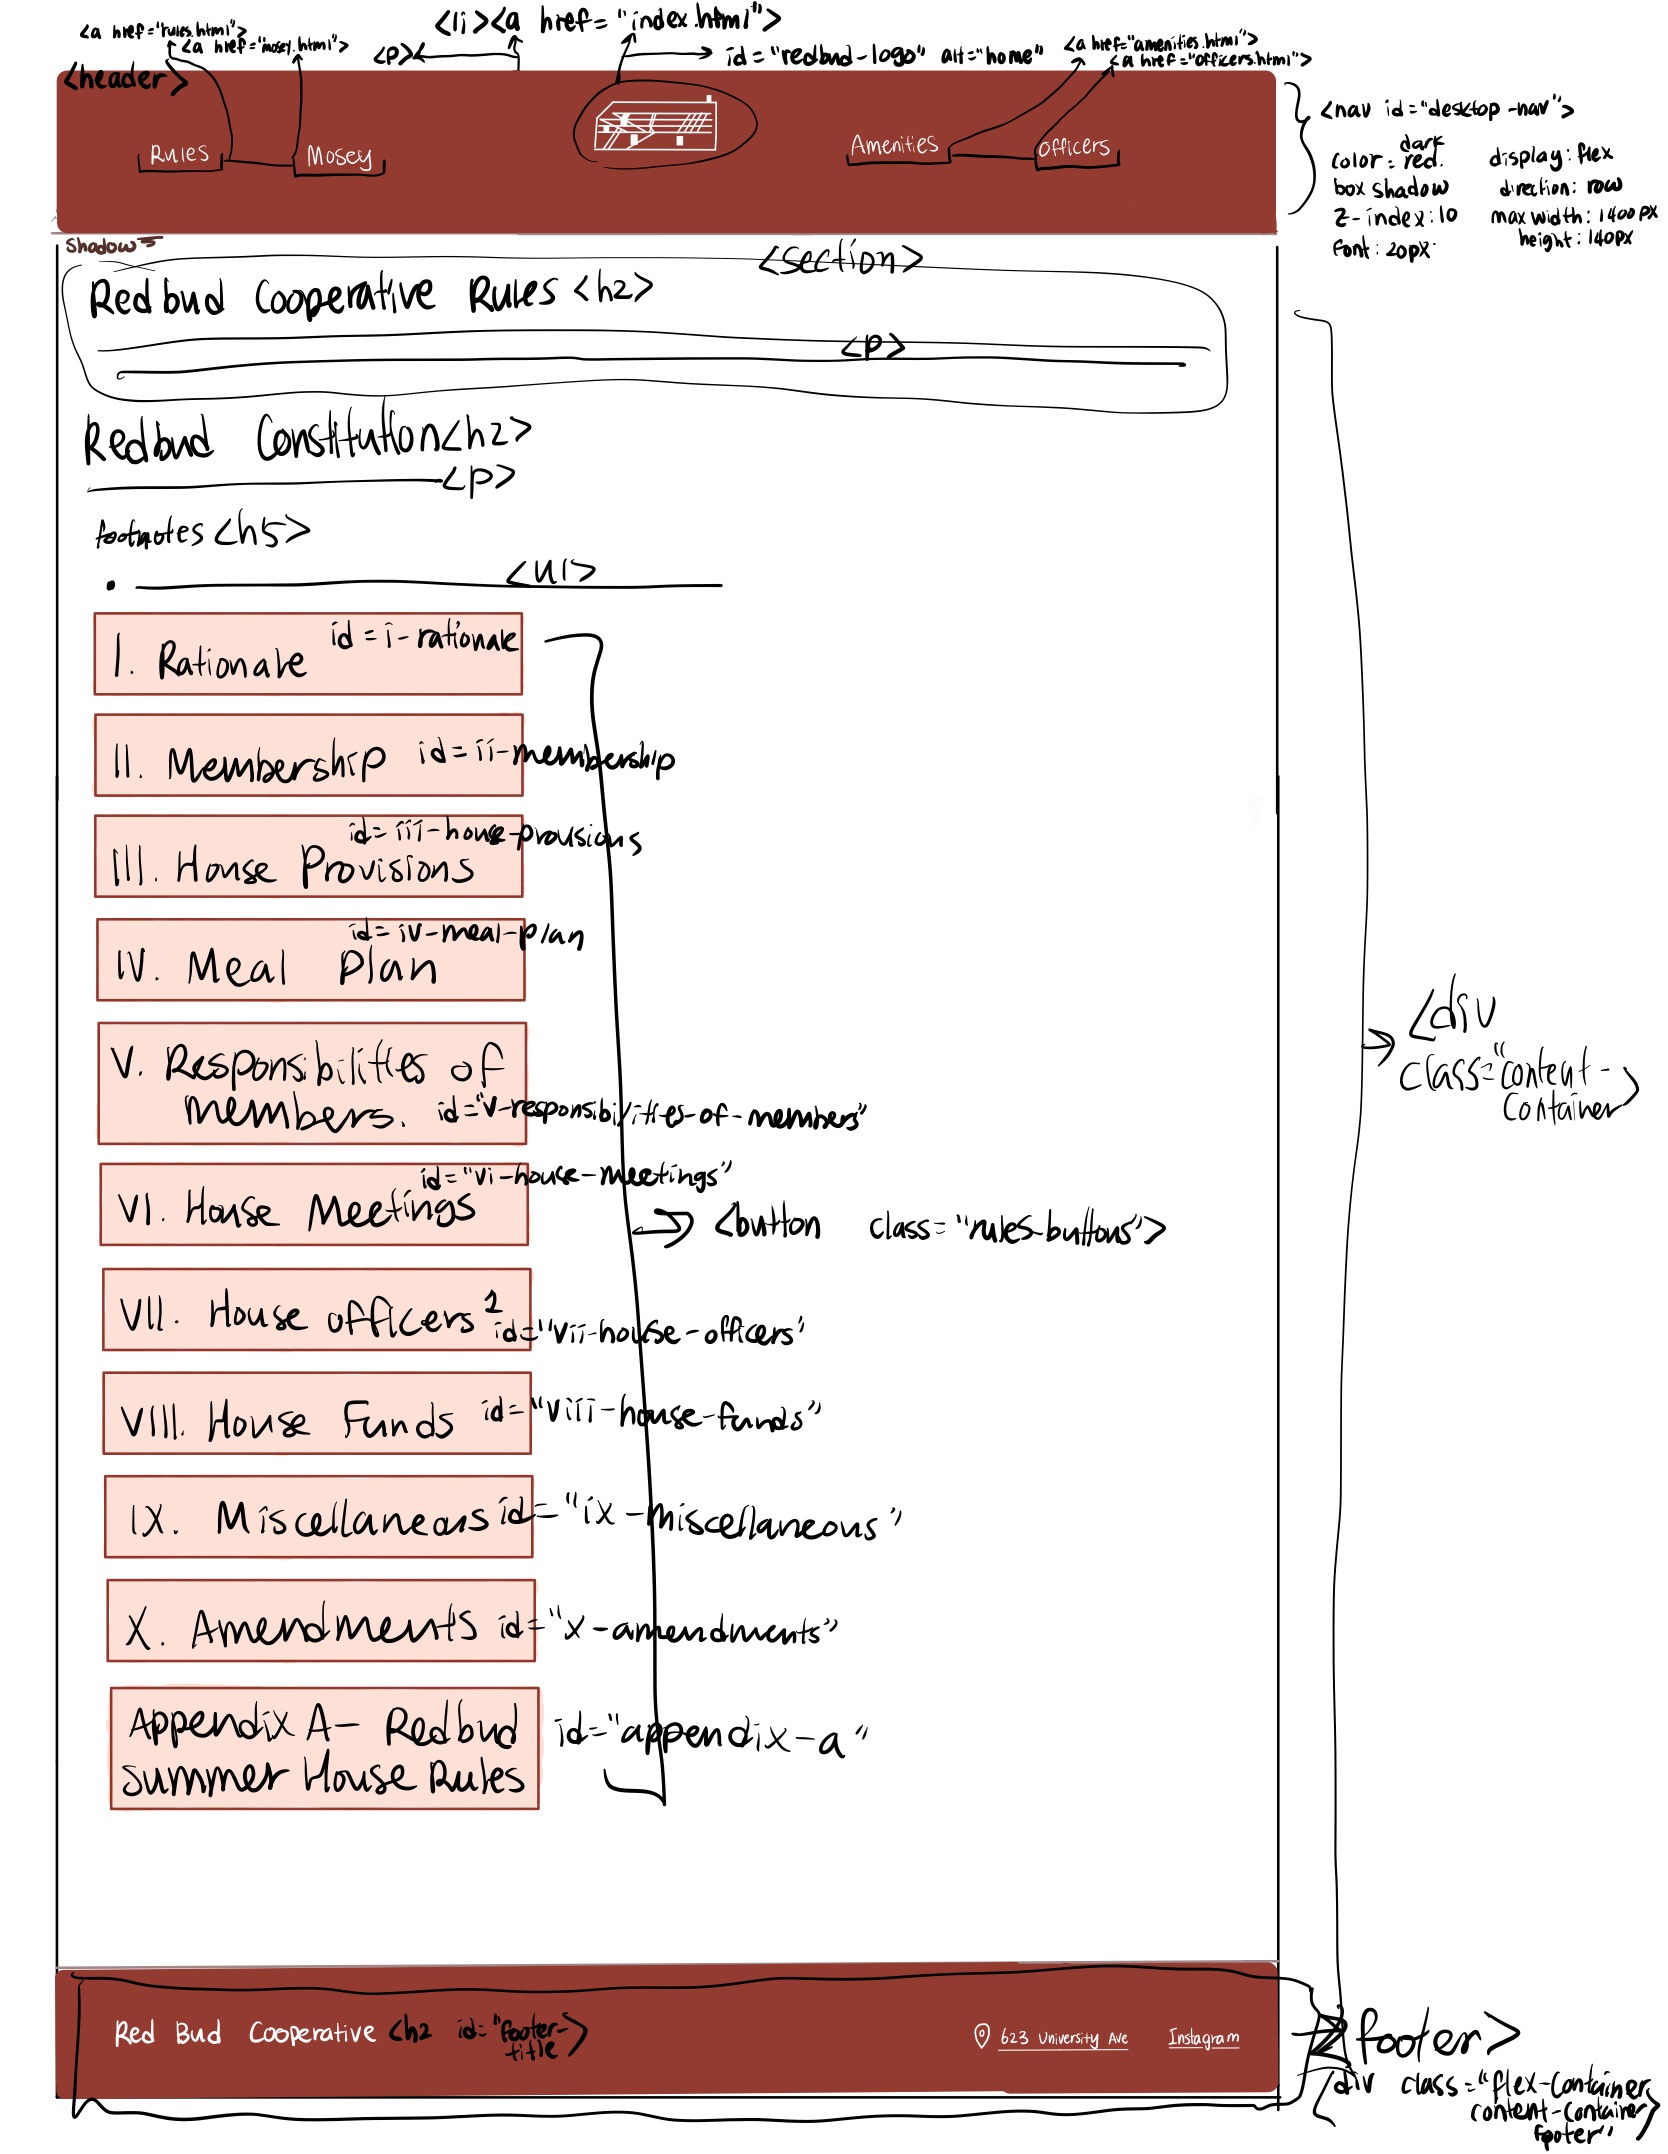 <li><a href="index.html">
<a href="rules.html">
<a href="mosey.html">
<p>
id="redbud-logo" alt="home"
<a href="amenities.html">
<a href="officers.html">
<header>
<nav id="desktop-nav">
Rules
Mosey
Amenities
Officers
color: dark red.
display: flex
box shadow
direction: row
z-index: 10
max width: 1400px
font: 20px
height: 140px
Shadow
<section>
Redbud Cooperative Rules <h2>
<p>
Redbud Constitution <h2>
<p>
footnotes <h5>
<ul>
I. Rationale id = i-rationale
II. Membership id = ii-membership
id = iii-house-provisions
III. House Provisions
id = iv-meal-plan
IV. Meal Plan
<div
class="content-
container>
V. Responsibilities of
members. id="v-responsibilities-of-members"
id="vi-house-meetings"
VI. House Meetings
<button class="rules-buttons">
VII. House officers 1
id="vii-house-officers'
VIII. House Funds id="viii-house-funds"
IX. Miscellaneous id="ix-miscellaneous"
X. Amendments id="x-amendments"
Appendix A- Redbud
Summer House Rules
id="appendix-a"
Red Bud Cooperative <h2 id="footer-
title>
623 University Ave
Instagram
footer>
<div class="flex-container
content-container
footer">